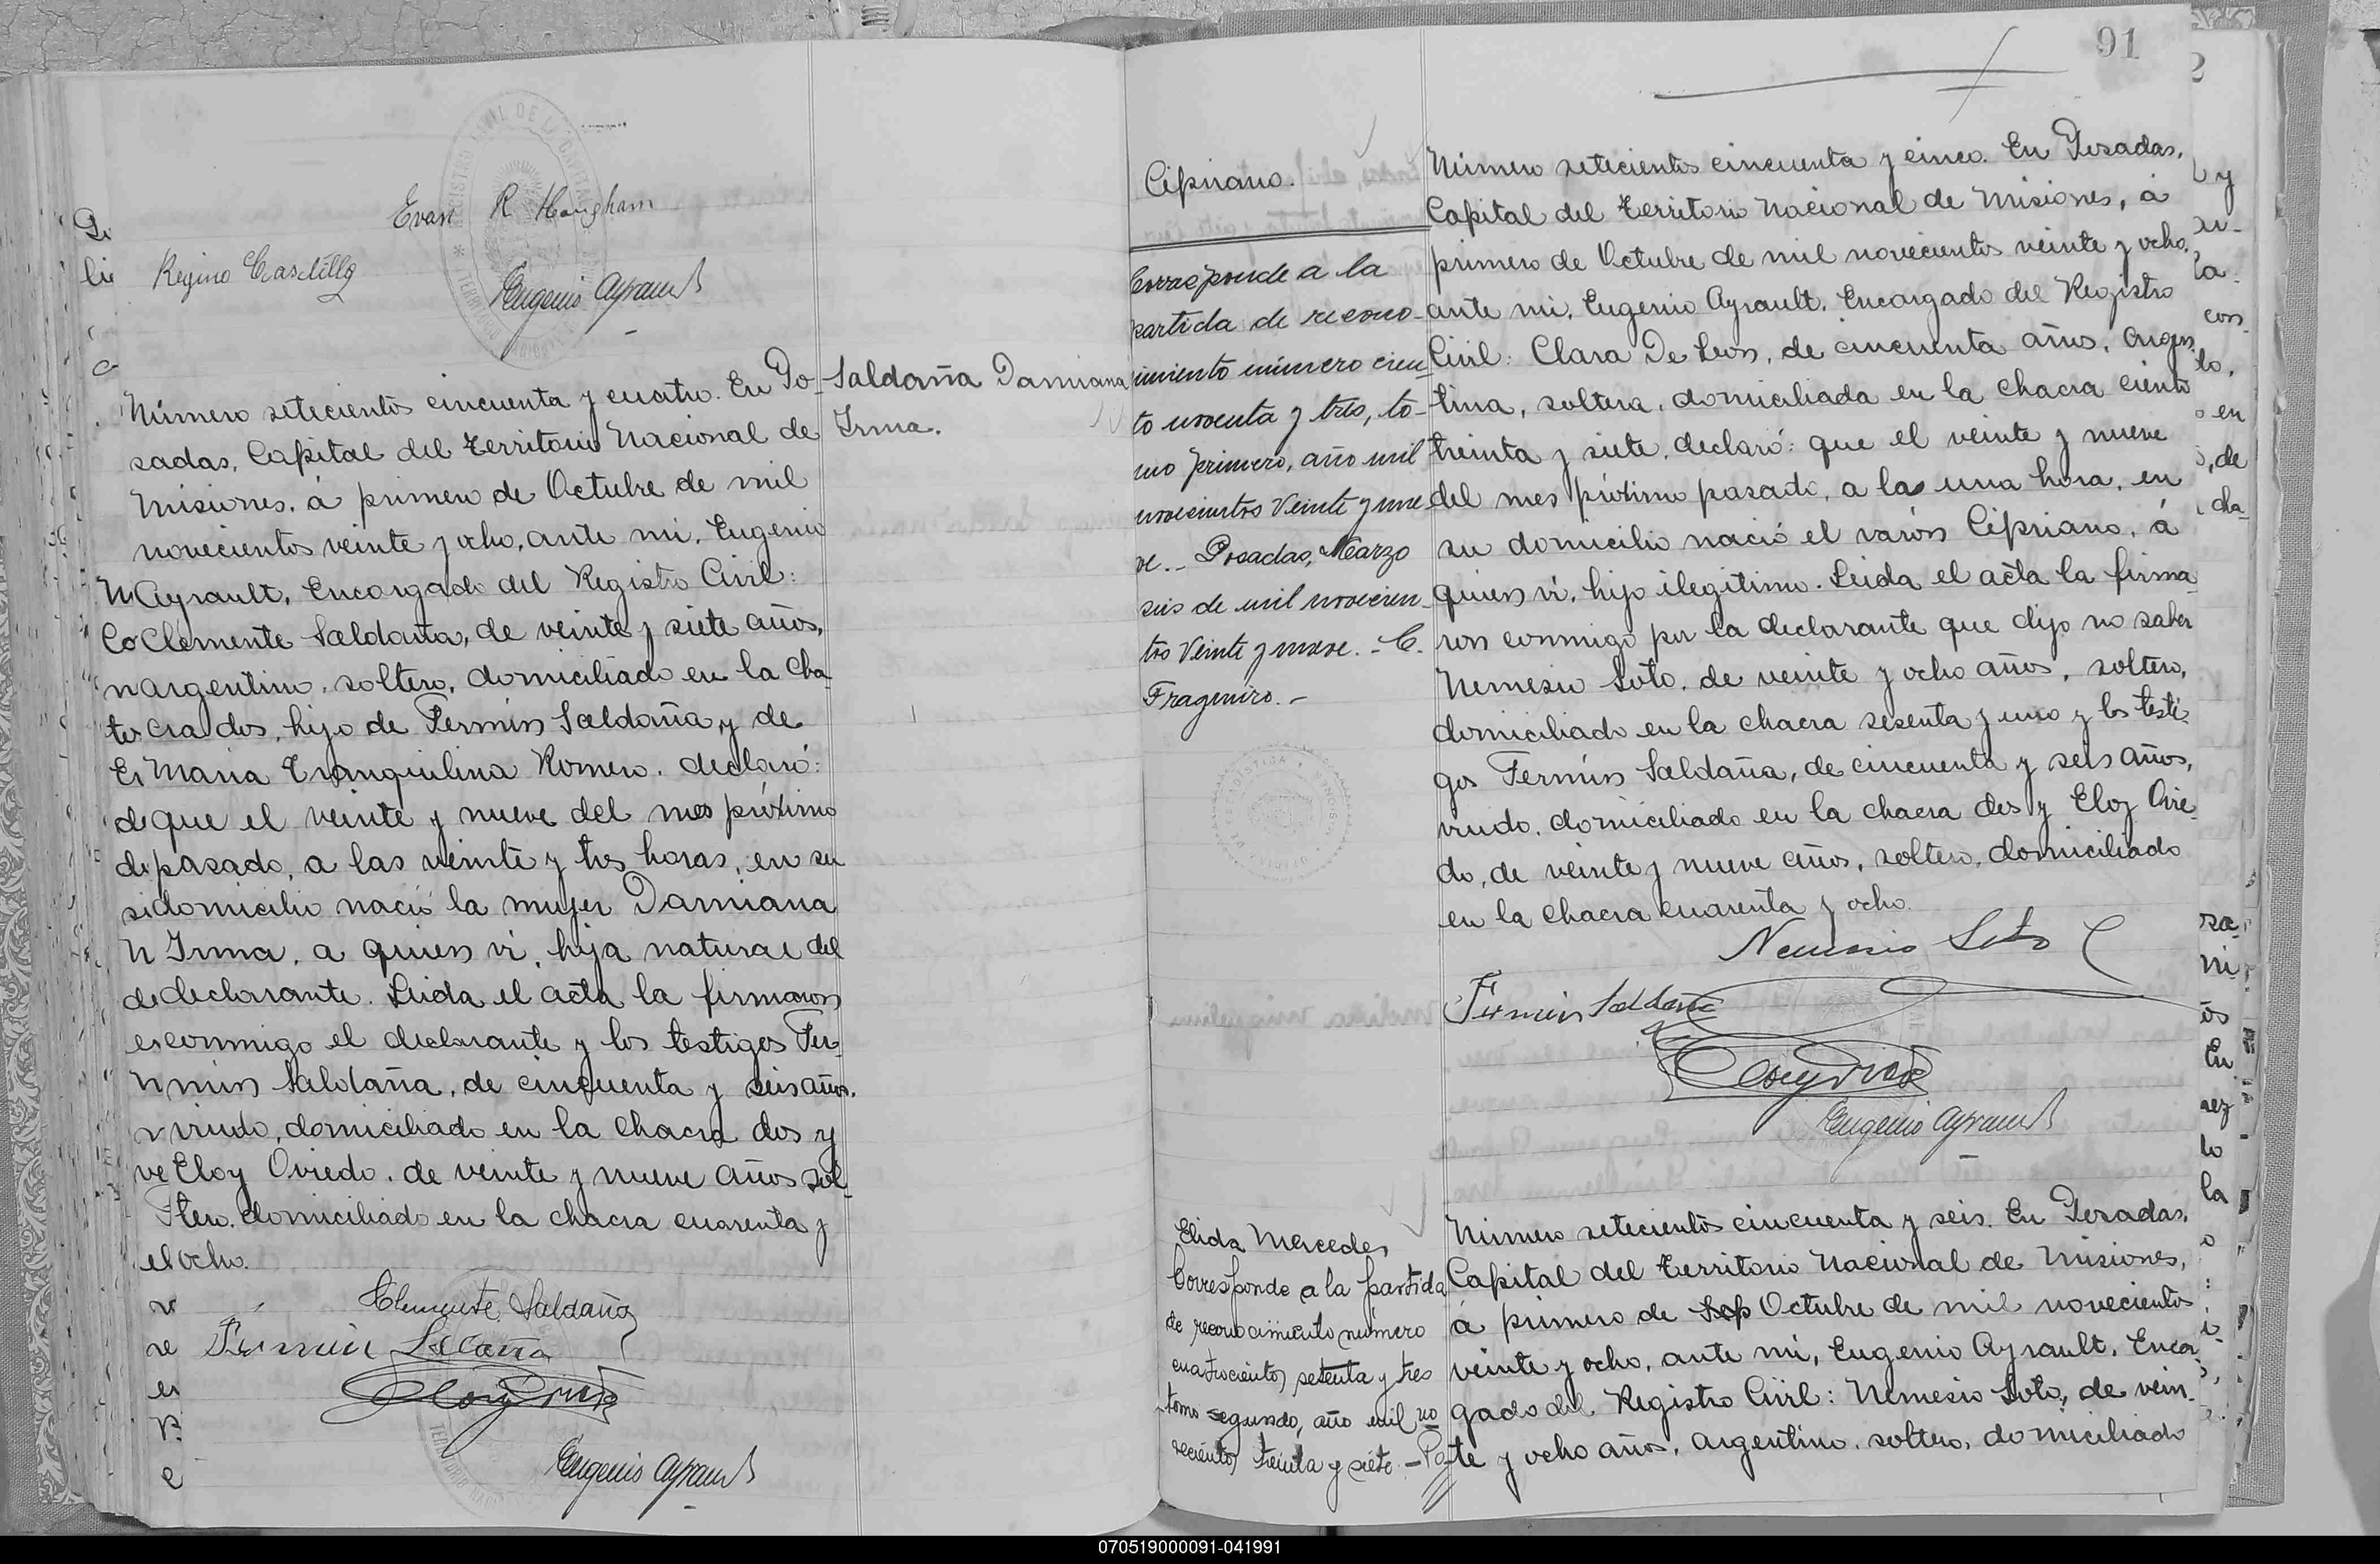 Evan R Hougham
Regino Castillo
Eugenio Ayrault
Saldaña Damiana
Irma.
Número setecientos cincuenta y cuatro. En Po-
sadas, Capital del Territorio Nacional de
Misiones, á primero de Octubre de mil
novecientos veinte y ocho, ante mi, Eugenio
Ayrault, Encargado del Registro Civil:
Clemente Saldaña, de veinte y siete años,
argentino, soltero, domiciliado en la cha-
cra dos, hijo de Fermin Saldaña, y de
Maria Tranquilina Romero, declaró:
que el veinte y nueve del mes próximo
pasado, a las veinte y tres horas, en su
domicilio nació la mujer Damiana
Irma, a quien vi, hija natural del
declarante. Leida el acta la firmaron
conmigo el declarante y los testigos Fer-
min Saldaña, de cincuenta y seis años,
viudo, domiciliado en la chacra dos y
Eloy Oviedo, de veinte y nueve años, sol-
tero, domiciliado en la chacra cuarenta y
ocho.
Clemente Saldaña
Fermin Saldaña
Eloy Oviedo
Eugenio Ayrault
91
Cipriano.
Corresponde a la
partida de recono-
cimiento número cien-
to noventa y tres, to-
mo primero, año mil
novecientos veinte y nue-
ve.- Posadas, Marzo
seis de mil novecien-
tos veinte y nueve. - C.
Frageniro. -
Número setecientos cincuenta y cinco. En Posadas,
Capital del Territorio Nacional de Misiones, á
primero de Octubre de mil novecientos veinte y ocho,
ante mi, Eugenio Ayrault, Encargado del Registro
Civil: Clara De Leon, de cincuenta años, argen-
tina, soltera, domiciliada en la chacra ciento
treinta y siete, declaró: que el veinte y nueve
del mes próximo pasado, a las una hora, en
su domicilio nació el varón Cipriano, á
quien vi, hijo ilegitimo. Leida el acta la firma-
ron conmigo por la declarante que dijo no saber
Nemesio Soto, de veinte y ocho años, soltero,
domiciliado en la chacra sesenta y uno y los testi-
gos Fermin Saldaña, de cincuenta y seis años,
viudo, domiciliado en la chacra dos y Eloy Ovie-
do, de veinte y nueve años, soltero, domiciliado
en la chacra cuarenta y ocho.
Nemesio Soto
Fermin Saldaña
Eloy Oviedo
Eugenio Ayrault
Elida Mercedes
Corresponde a la partida
de reconocimiento número
cuatrocientos setenta y tres
tomo segundo, año mil no
vecientos treinta y siete. - Po-
Número setecientos cincuenta y seis. En Posadas,
Capital del Territorio Nacional de Misiones,
á primero de Sep Octubre de mil novecientos
veinte y ocho, ante mi, Eugenio Ayrault, Encar-
gado del Registro Civil: Nemesio Soto, de vein-
te y ocho años, argentino, soltero, domiciliado
070519000091-041991